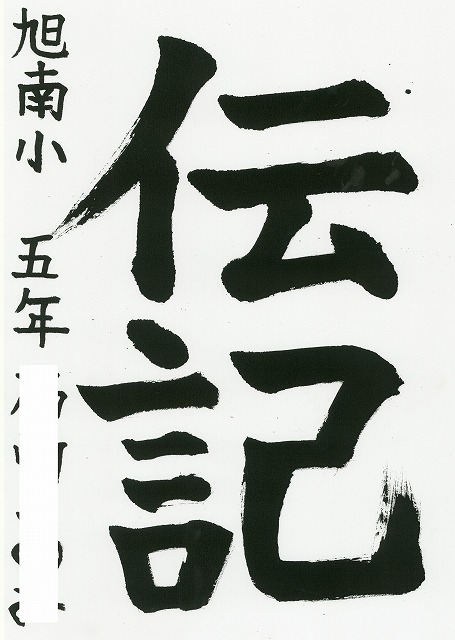 伝記
旭南小 五年